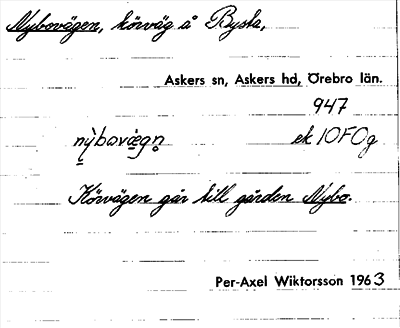 Nybovägen, körväg å Bysta,
Askers sn, Askers hd, Örebro län.
947
nỳbovægn̥ ek 10F0g
Körvägen går till gården Nybo.
Per-Axel Wiktorsson 1963